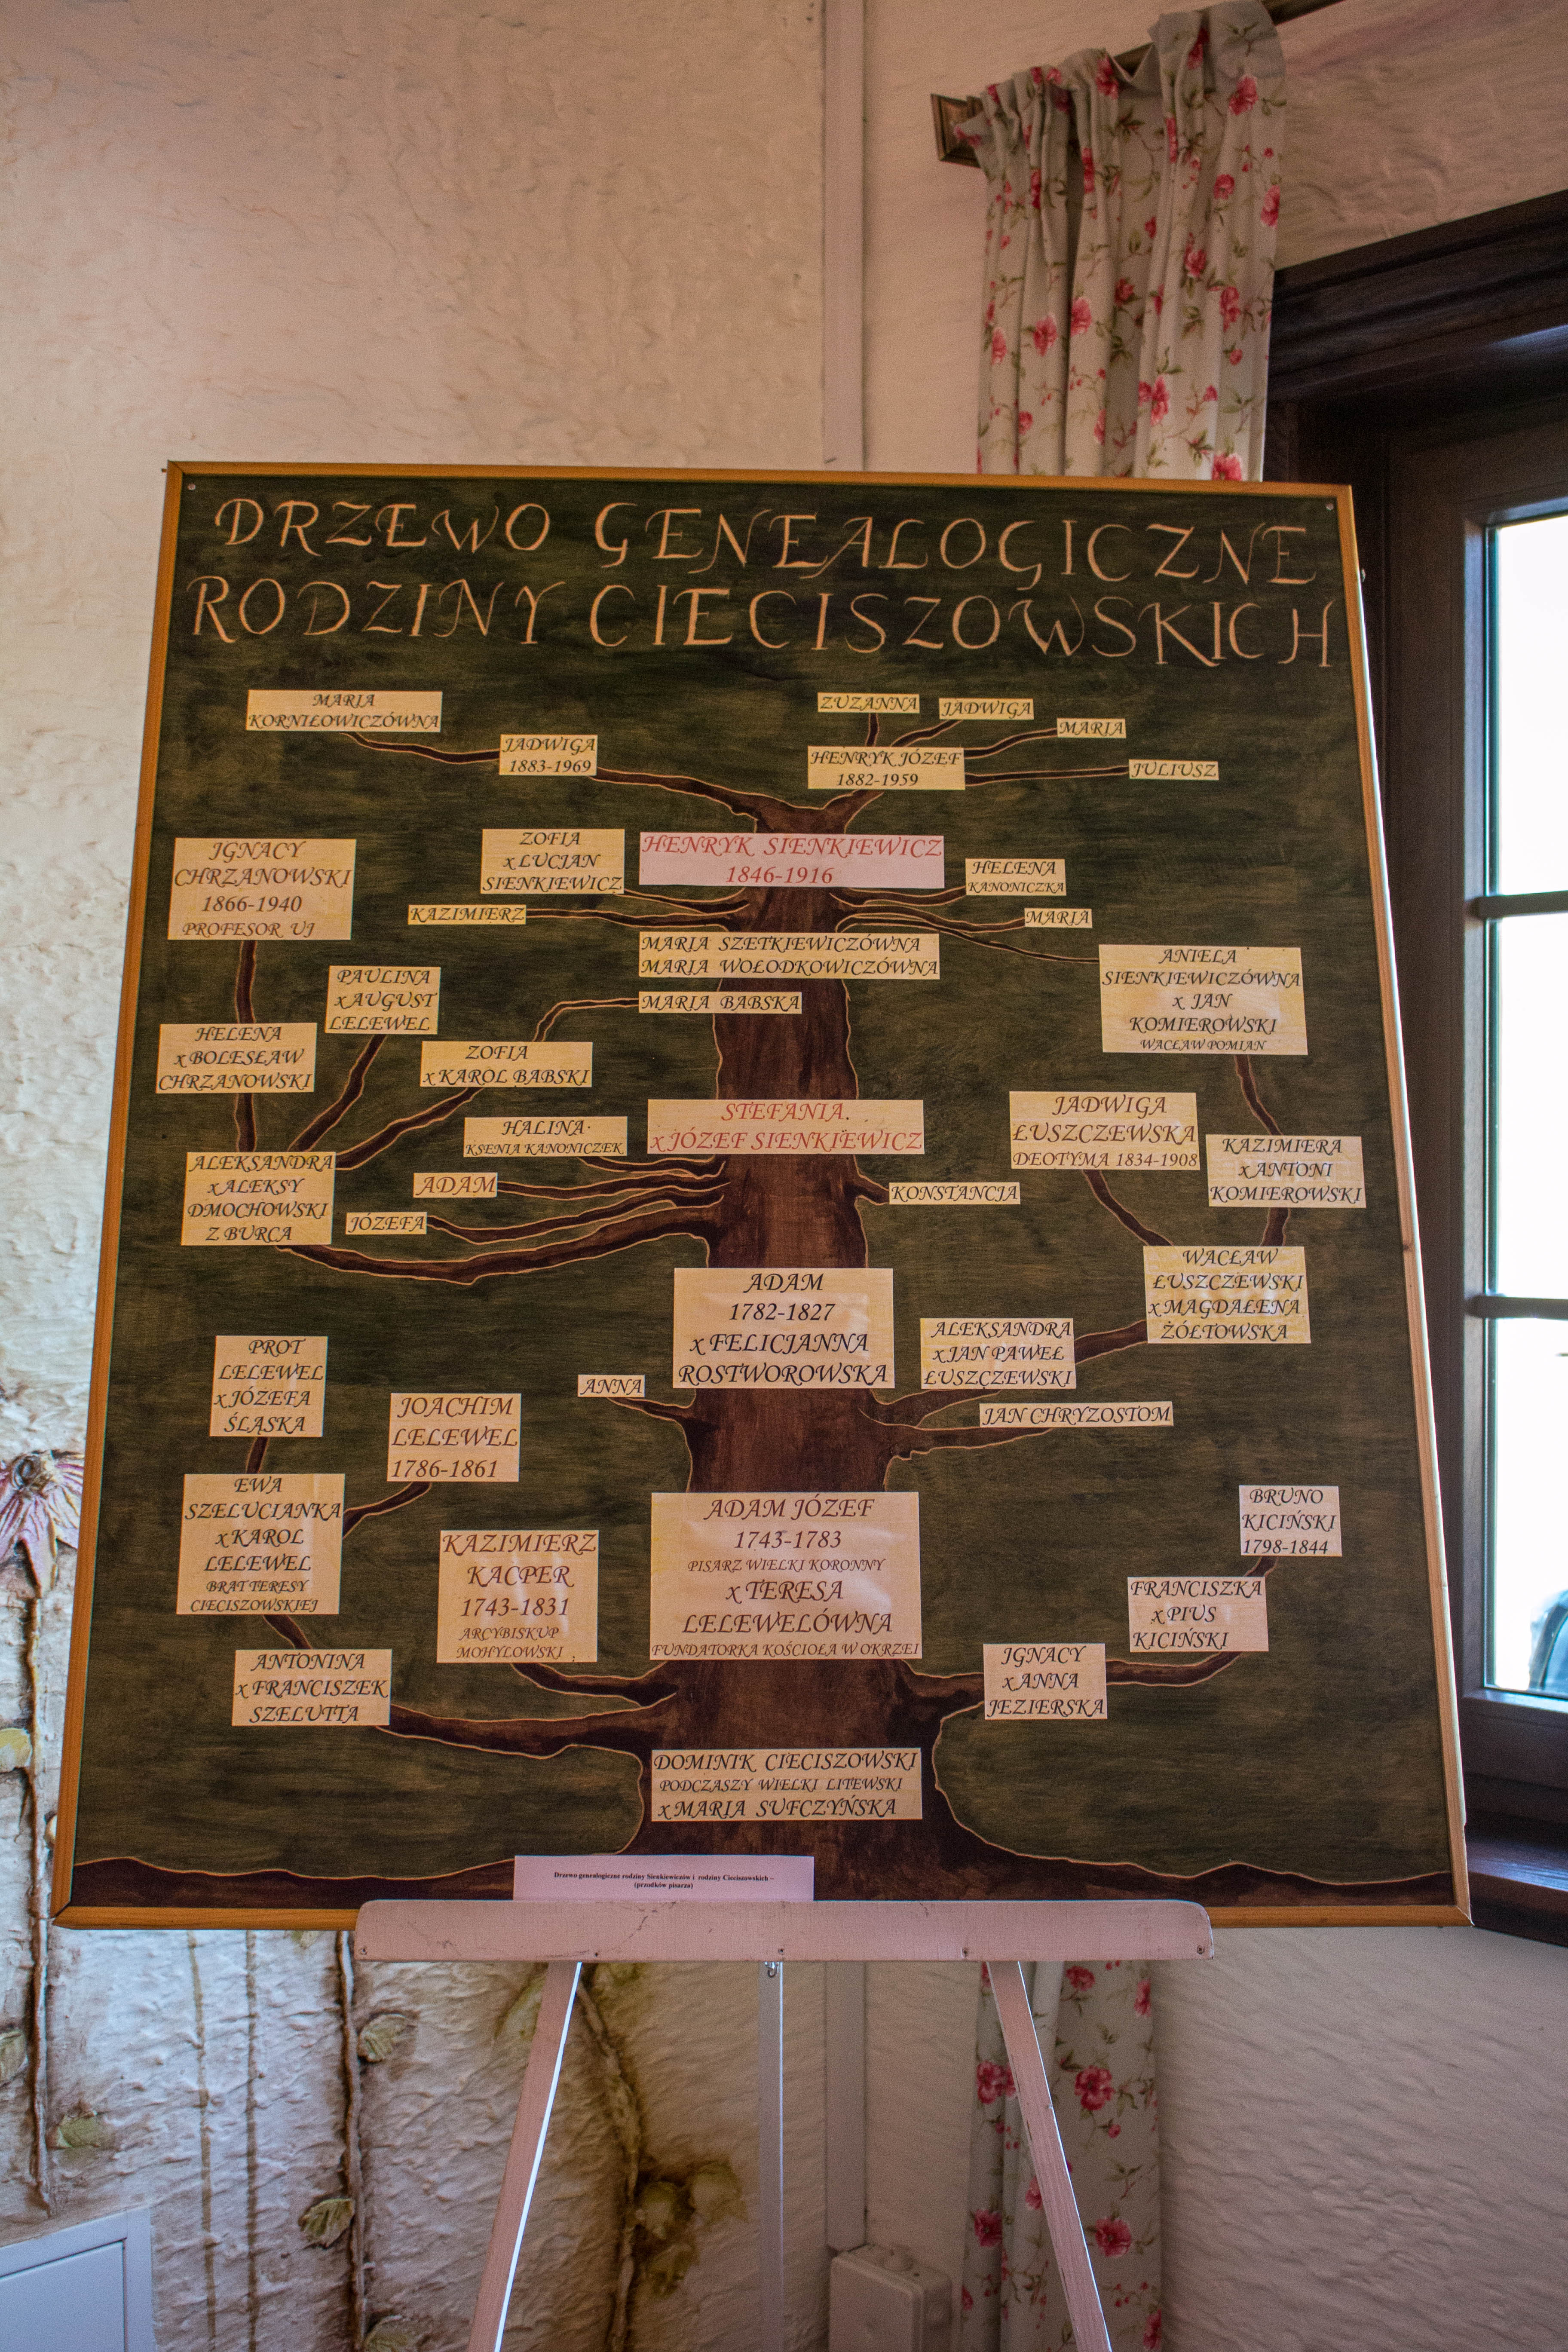 DRZEWO GENEALOGICZNE
RODZINY CIECISZOWSKICH
MARIA
KORNIŁOWICZÓWNA
JADWIGA
1883-1969
ZUZANNA
JADWIGA
MARIA
HENRYK JÓZEF
1882-1959
JULIUSZ
IGNACY
CHRZANOWSKI
1866-1940
PROFESOR UJ
ZOFIA
x LUCJAN
SIENKIEWICZ
HENRYK SIENKIEWICZ
1846-1916
HELENA
KANONICZKA
KAZIMIERZ
MARIA
MARIA SZETKIEWICZÓWNA
MARIA WOŁODKOWICZÓWNA
ANIELA
SIENKIEWICZÓWNA
x JAN
KOMIEROWSKI
WACŁAW POMIAN
PAULINA
x AUGUST
LELEWEL
MARIA BABSKA
HELENA
x BOLESŁAW
CHRZANOWSKI
ZOFIA
x KAROL BABSKI
HALINA
KSENIA KANONICZEK
STEFANIA.
x JÓZEF SIENKIEWICZ
JADWIGA
ŁUSZCZEWSKA
DEOTYMA 1834-1908
KAZIMIERA
x ANTONI
KOMIEROWSKI
ALEKSANDRA
x ALEKSY
DMOCHOWSKI
Z BURCA
ADAM
JÓZEFA
KONSTANCJA
ADAM
1782-1827
x FELICJANNA
ROSTWOROWSKA
WACŁAW
ŁUSZCZEWSKI
x MAGDALENA
ŻÓŁTOWSKA
ALEKSANDRA
x JAN PAWEŁ
ŁUSZCZEWSKI
PROT
LELEWEL
x JÓZEFA
ŚLĄSKA
ANNA
JAN CHRYZOSTOM
JOACHIM
LELEWEL
1786-1861
EWA
SZELUCIANKA
x KAROL
LELEWEL
BRAT TERESY
CIECISZOWSKIEJ
KAZIMIERZ
KACPER
1743-1831
ARCYBISKUP
MOHYLOWSKI
ADAM JÓZEF
1743-1783
PISARZ WIELKI KORONNY
x TERESA
LELEWELÓWNA
FUNDATORKA KOŚCIOŁA W OKRZEI
BRUNO
KICIŃSKI
1798-1844
FRANCISZKA
x PIUS
KICIŃSKI
IGNACY
x ANNA
JEZIERSKA
ANTONINA
x FRANCISZEK
SZELUTTA
DOMINIK CIECISZOWSKI
PODCZASZY WIELKI LITEWSKI
x MARIA SUFCZYŃSKA
Drzewo genealogiczne rodziny Sienkiewiczów i rodziny Cieciszowskich –
(przodków pisarza)